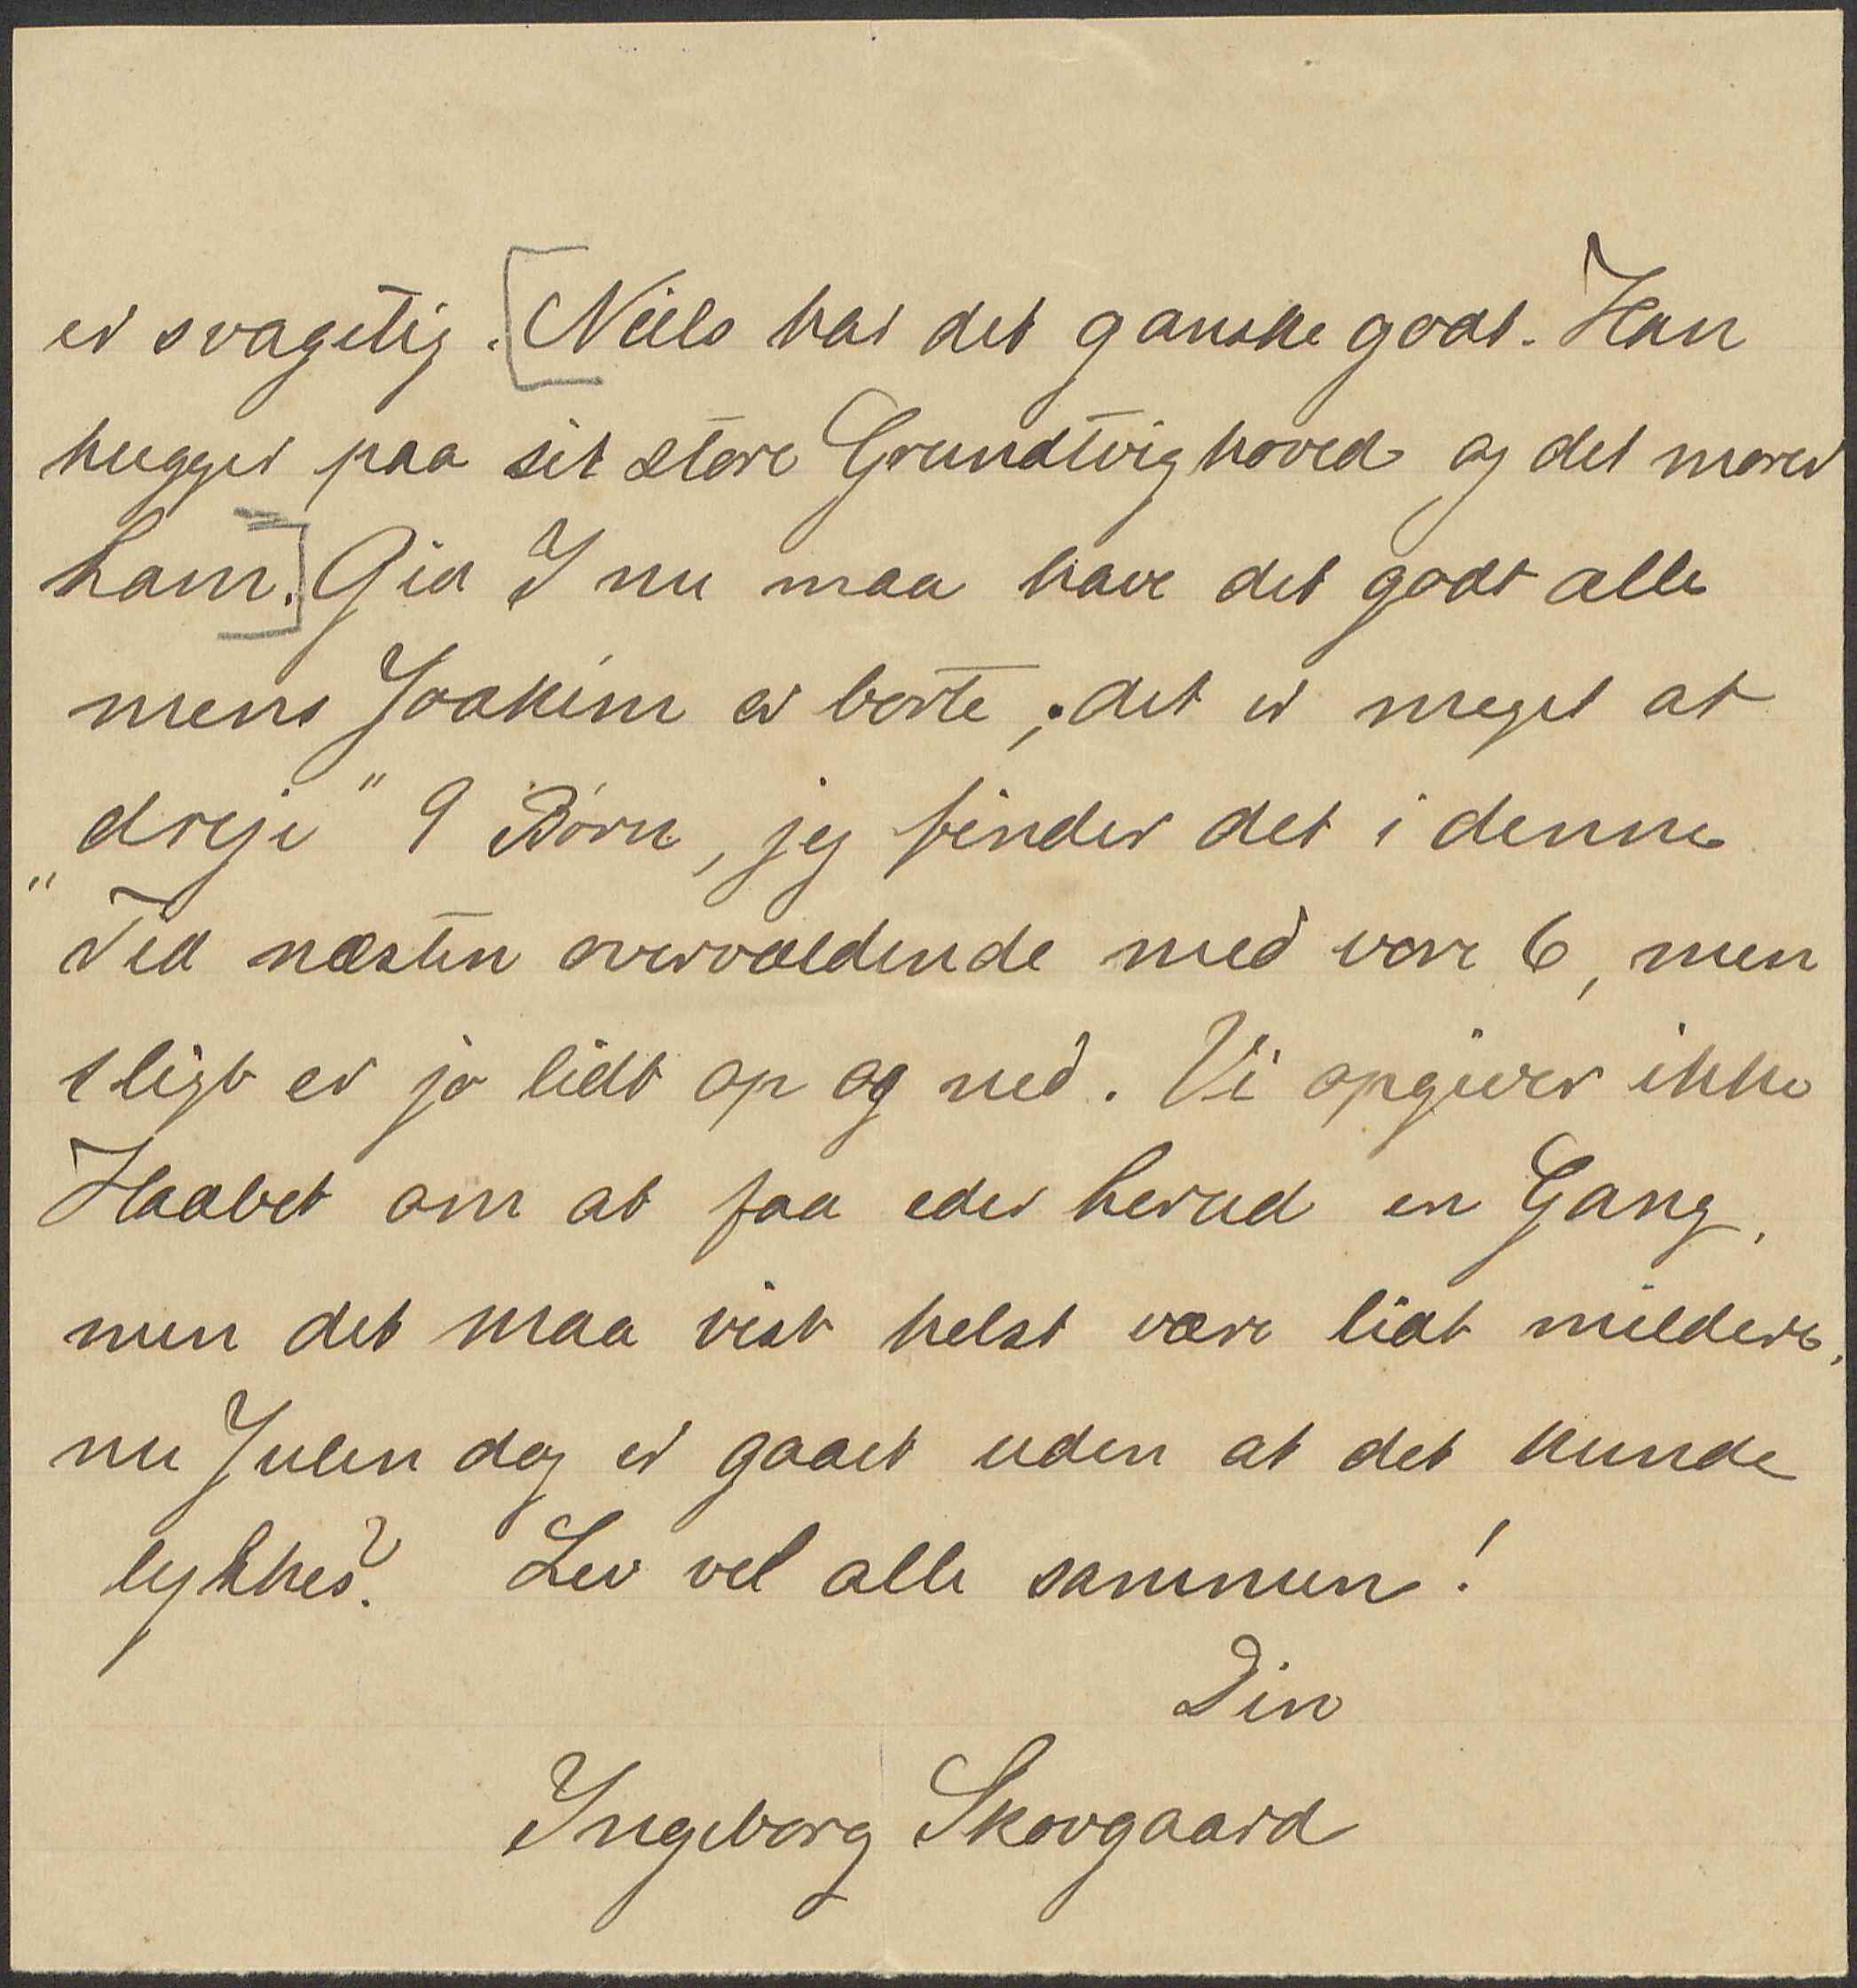 er svagelig. [Niels har det ganske godt. Han
hugger paa sit store Grundtvighoved og det morer
ham.] Gid I nu maa have det godt alle
mens Joakim er borte; det er meget at
„dreje" 9 Børn, jeg finder det i denne
Tid næsten overvældende med vore 6, men
sligt er jo lidt op og ned. Vi opgiver ikke
Haabet om at faa eder herud en Gang,
men det maa vist helst være lidt mildere,
nu Julen dog er gaaet uden at det kunde
lykkes? Lev vel alle sammen!
Din
Ingeborg Skovgaard